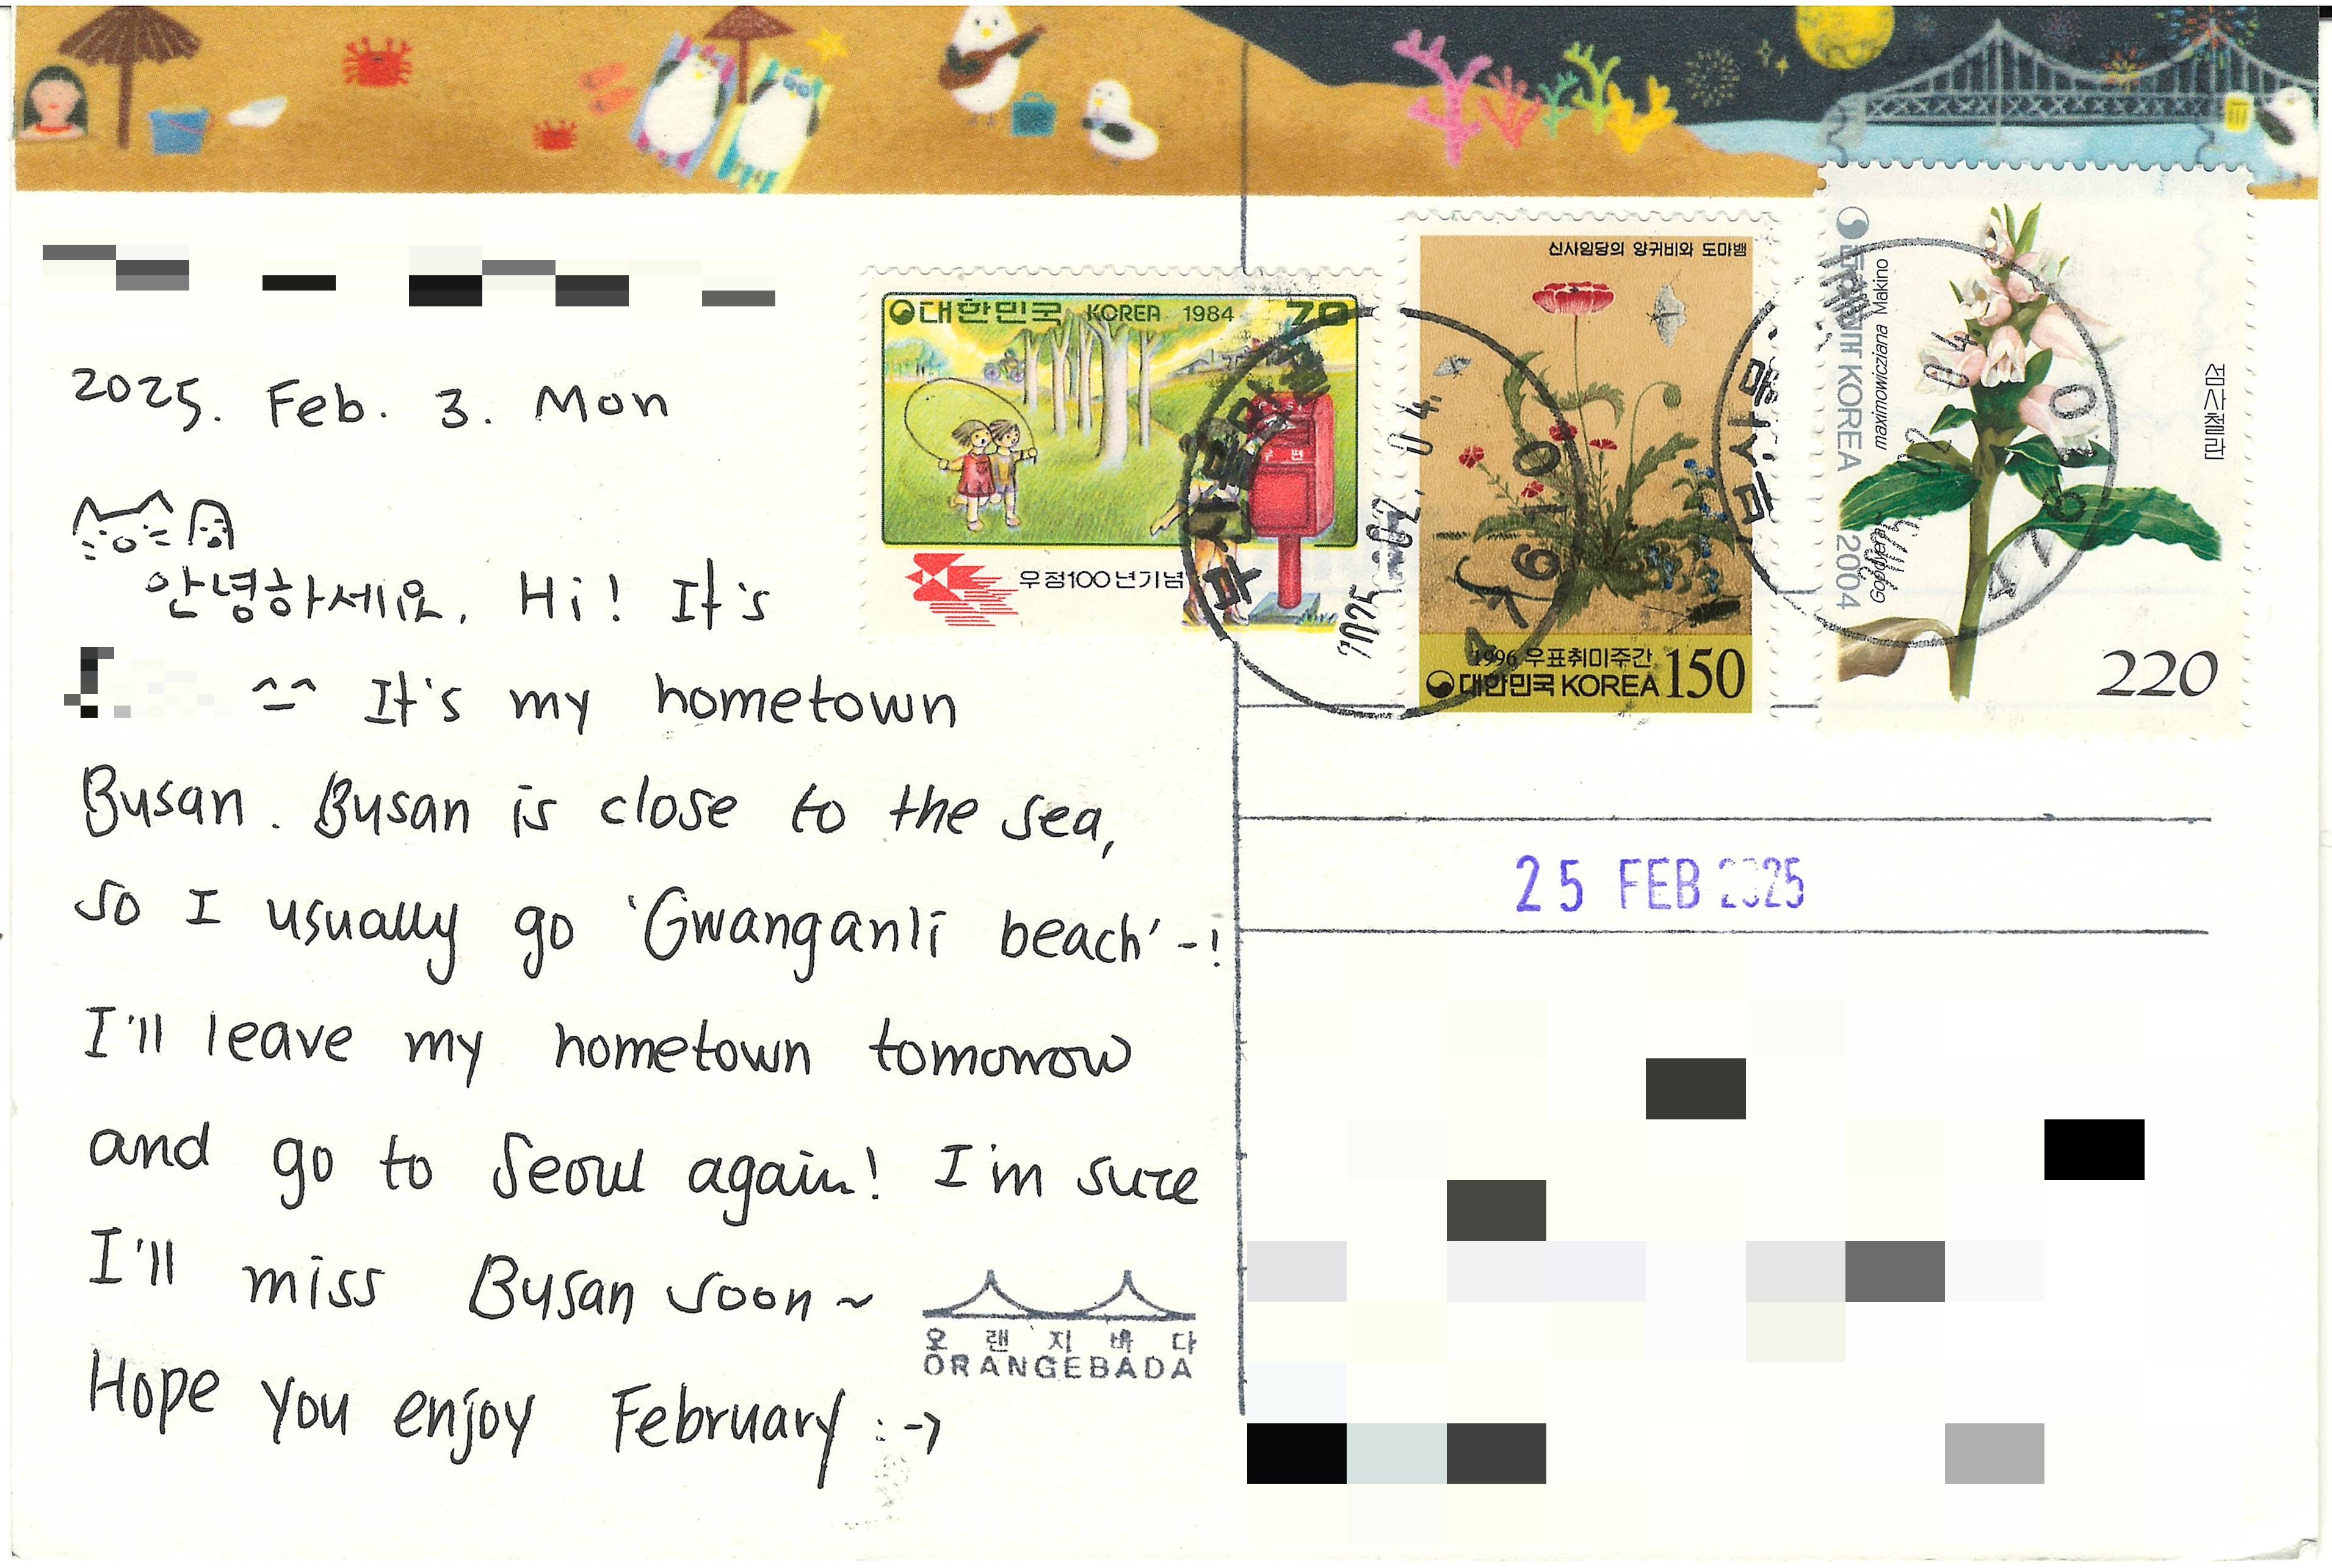 2025. Feb. 3. Mon
안녕하세요. Hi! It's
^^ It's my hometown
Busan. Busan is close to the sea,
so I usually go 'Gwanganli beach' -!
I'll leave my hometown tomorrow
and go to Seoul again! I'm sure
I'll miss Busan soon ~
Hope you enjoy February :->
오랜지바다
ORANGEBADA
대한민국 KOREA 1984 70
우편
우정100년기념
신사임당의 양귀비와 도마뱀
1996 우표취미주간
대한민국 KOREA 150
대한민국 KOREA 2004
Goodyera maximowicziana Makino
섬사철란
220
2025. 02. 04.
25 FEB 2025